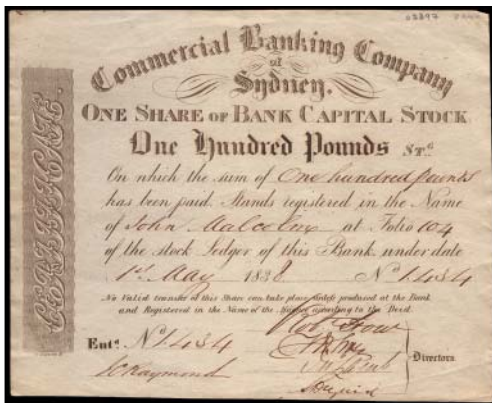 Commercial Banking Company
of
Sydney.
ONE SHARE OF BANK CAPITAL STOCK
One Hundred Pounds ST.G
On which the sum of One hundred pounds
has been paid. Stands registered in the Name
of John Malcolm at Folio 104
of the stock Ledger of this Bank under date
1st May 1838 No 1434
No Valid transfer of this Share can take place unless produced at the Bank
and Registered in the Name of the according to the Deed.
Entd. No 1434
Directors
CERTIFICATE